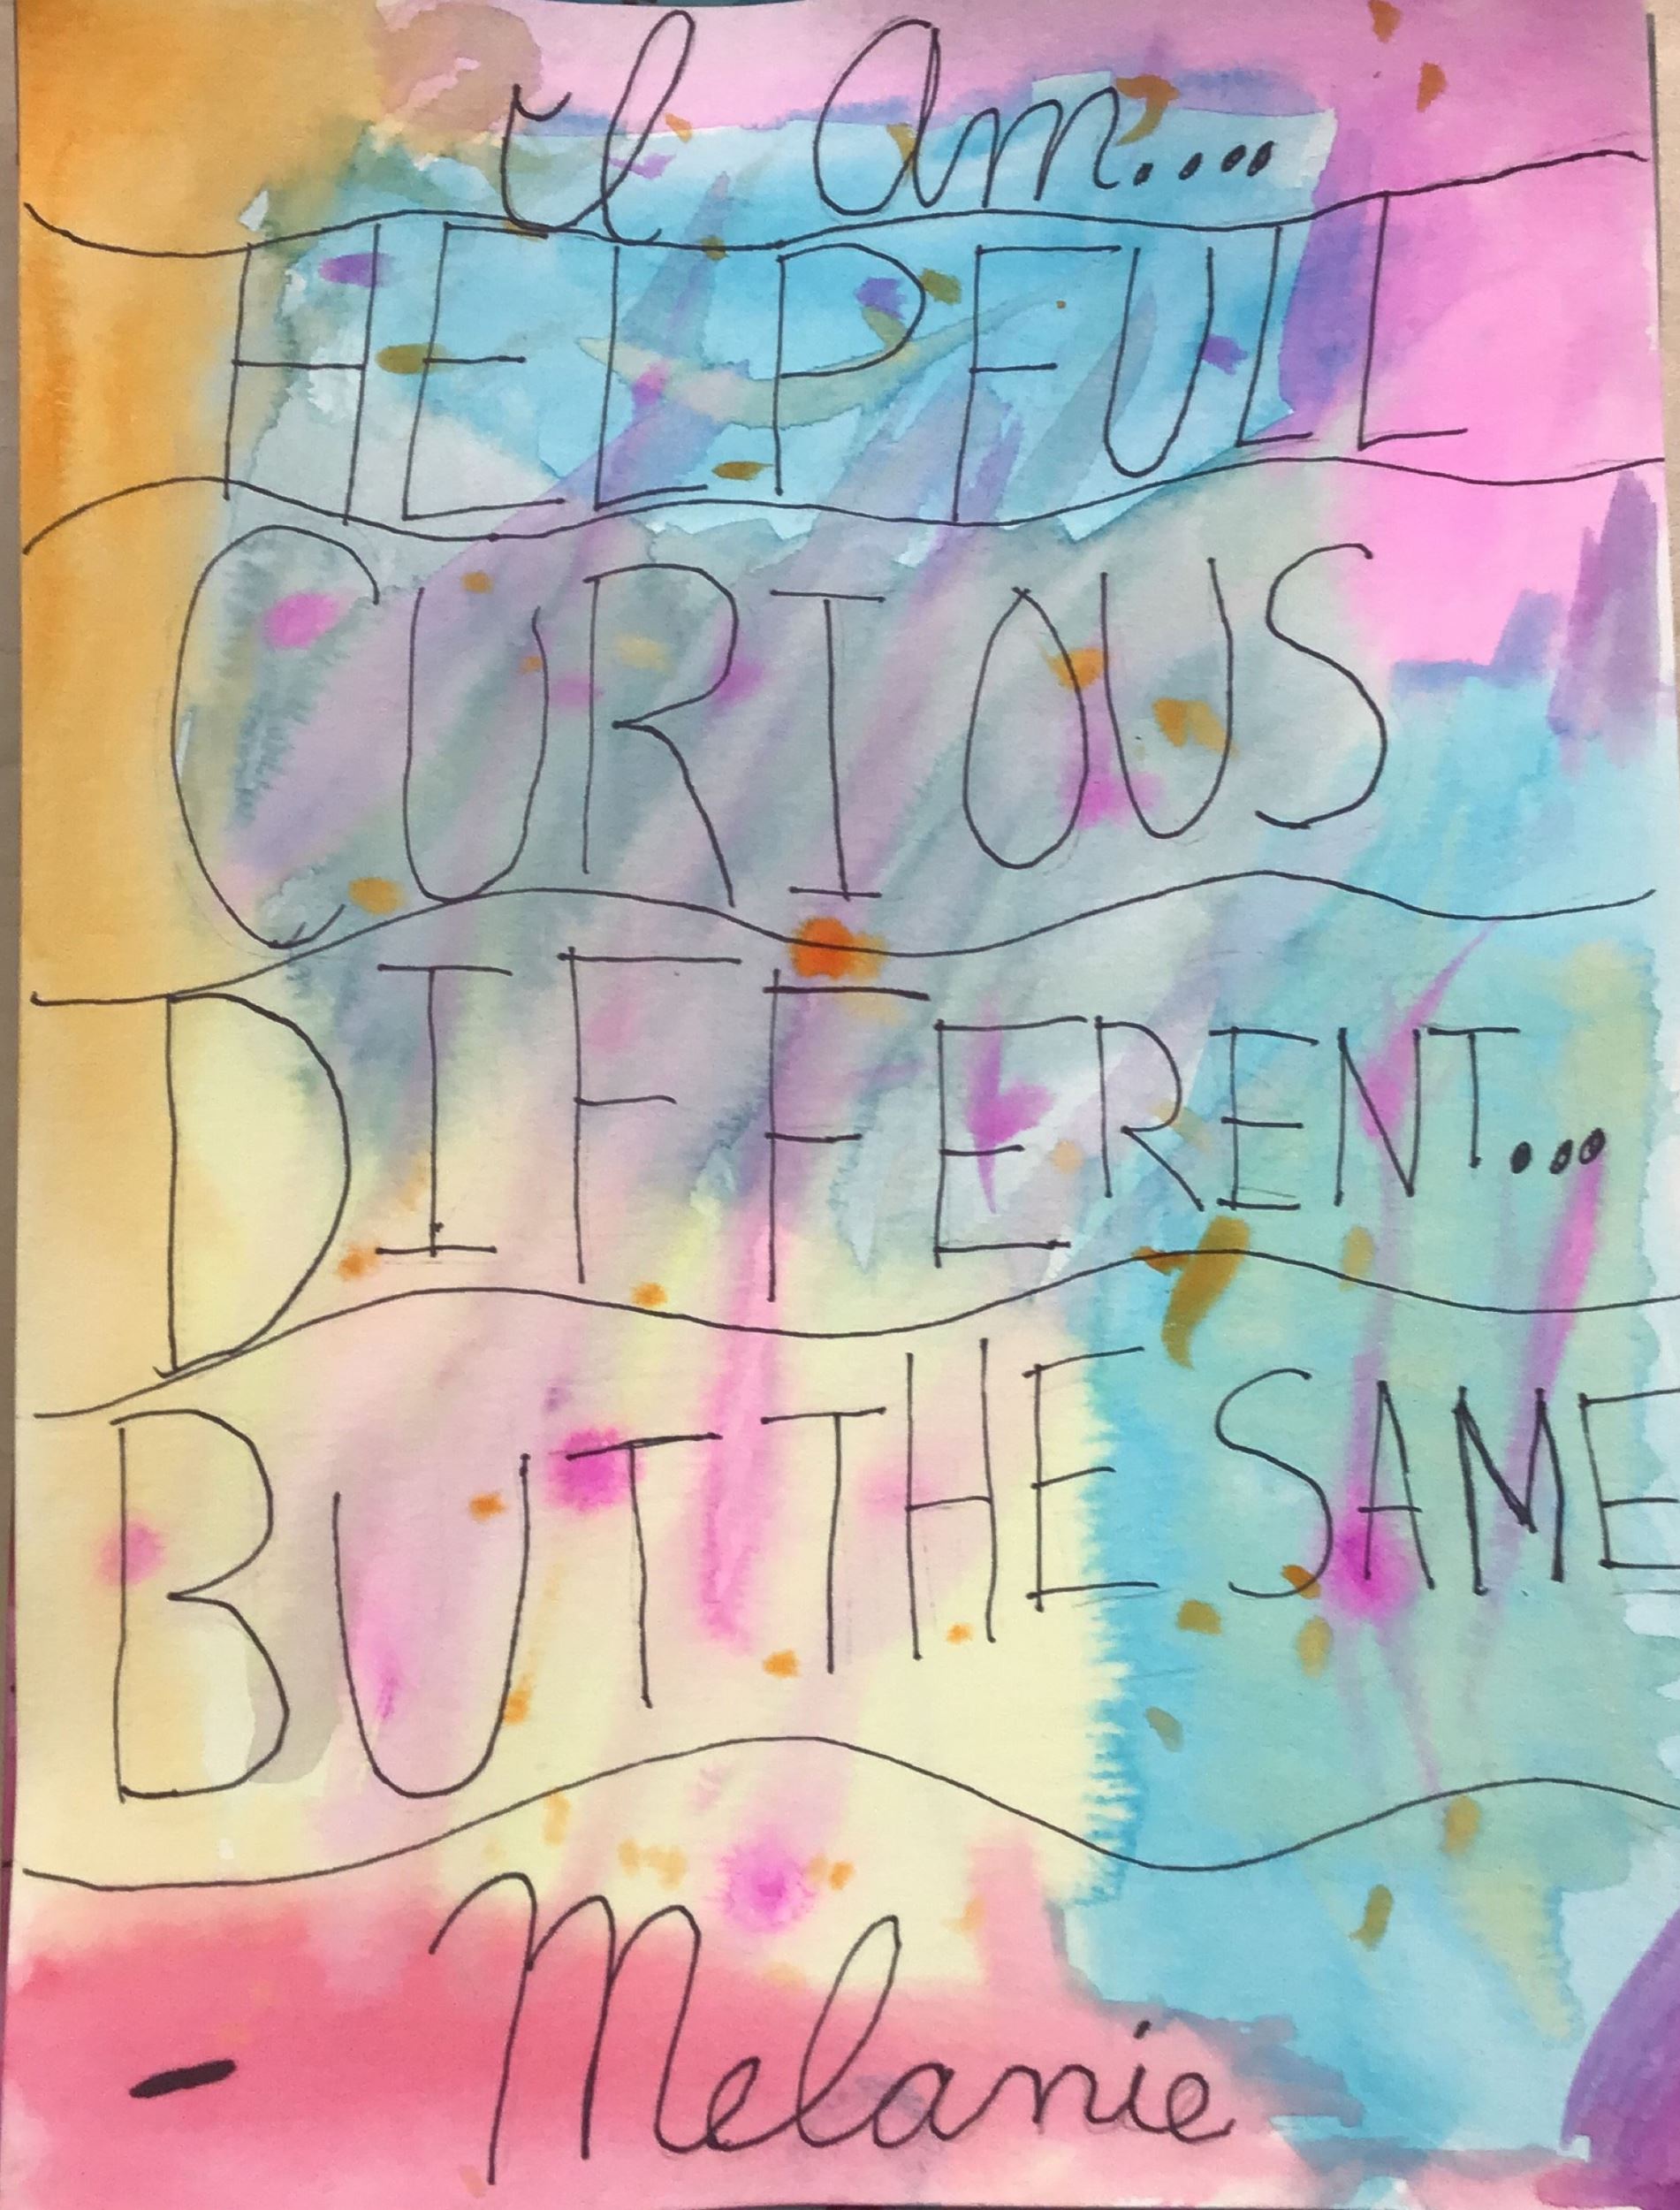 I am....
HELPFULL
CURIOUS
DIFFERENT...
BUT THE SAME
- Melanie